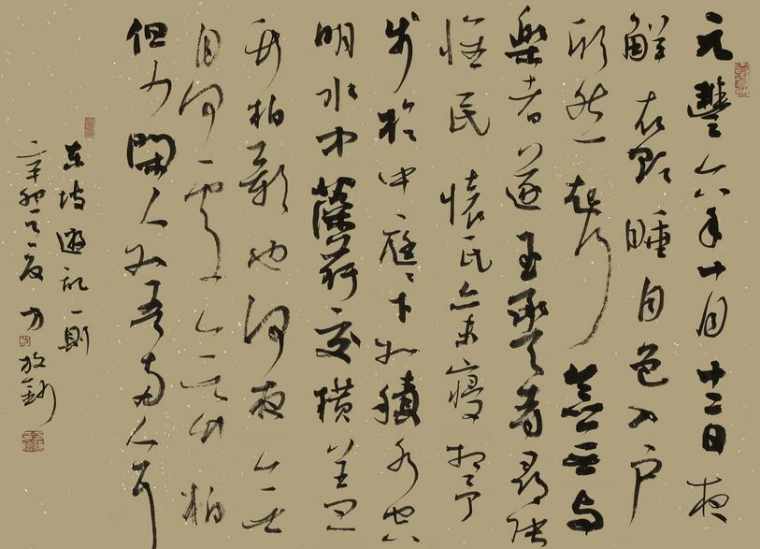 元豐六年十月十二日夜
解衣欲睡月色入戶
欣然起行念無与
樂者遂至承天寺尋張
懷民懷民亦未寢相与
步於中庭庭下如積水空
明水中藻荇交橫蓋
竹柏影也何夜無
月何處無竹柏
但少閑人如吾兩人耳
東坡遊記一則
辛卯之夏 方放